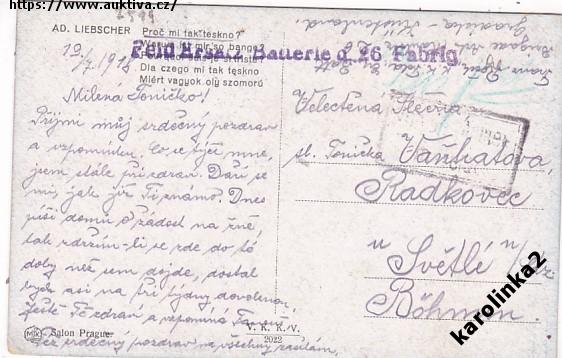 https://www.auktiva.cz/
2599
AD. LIEBSCHER
Proč mi tak teskno?
Warum ist mir so bange?
Dla czego mi tak tęskno
Miért vagyok oly szomorú
Feld Ersatz Batterie d. 26 Fabrig
12/7 1918
Milená Toničko!
Přijmi můj srdečný pozdrav
a vzpomínku. Co se týče mne,
jsem stále při zdraví. Daří se
mi, jak již Ti známo. Dnes
píši domů o žádost na žně,
tak zdrzím-li se zde do té
doby než sem dojde, dostal
bych asi na tři týdny dovolenou.
Ještě Tě zdraví a vzpomíná
Též srdečný pozdrav na všechny zasílám,
Velectěná Slečna
sl. Tonička Vaňhatova,
Radkovec
u Světlé n/Sáz
Böhmen.
Salon Prague
V. K. K. V.
2022
karolinka2